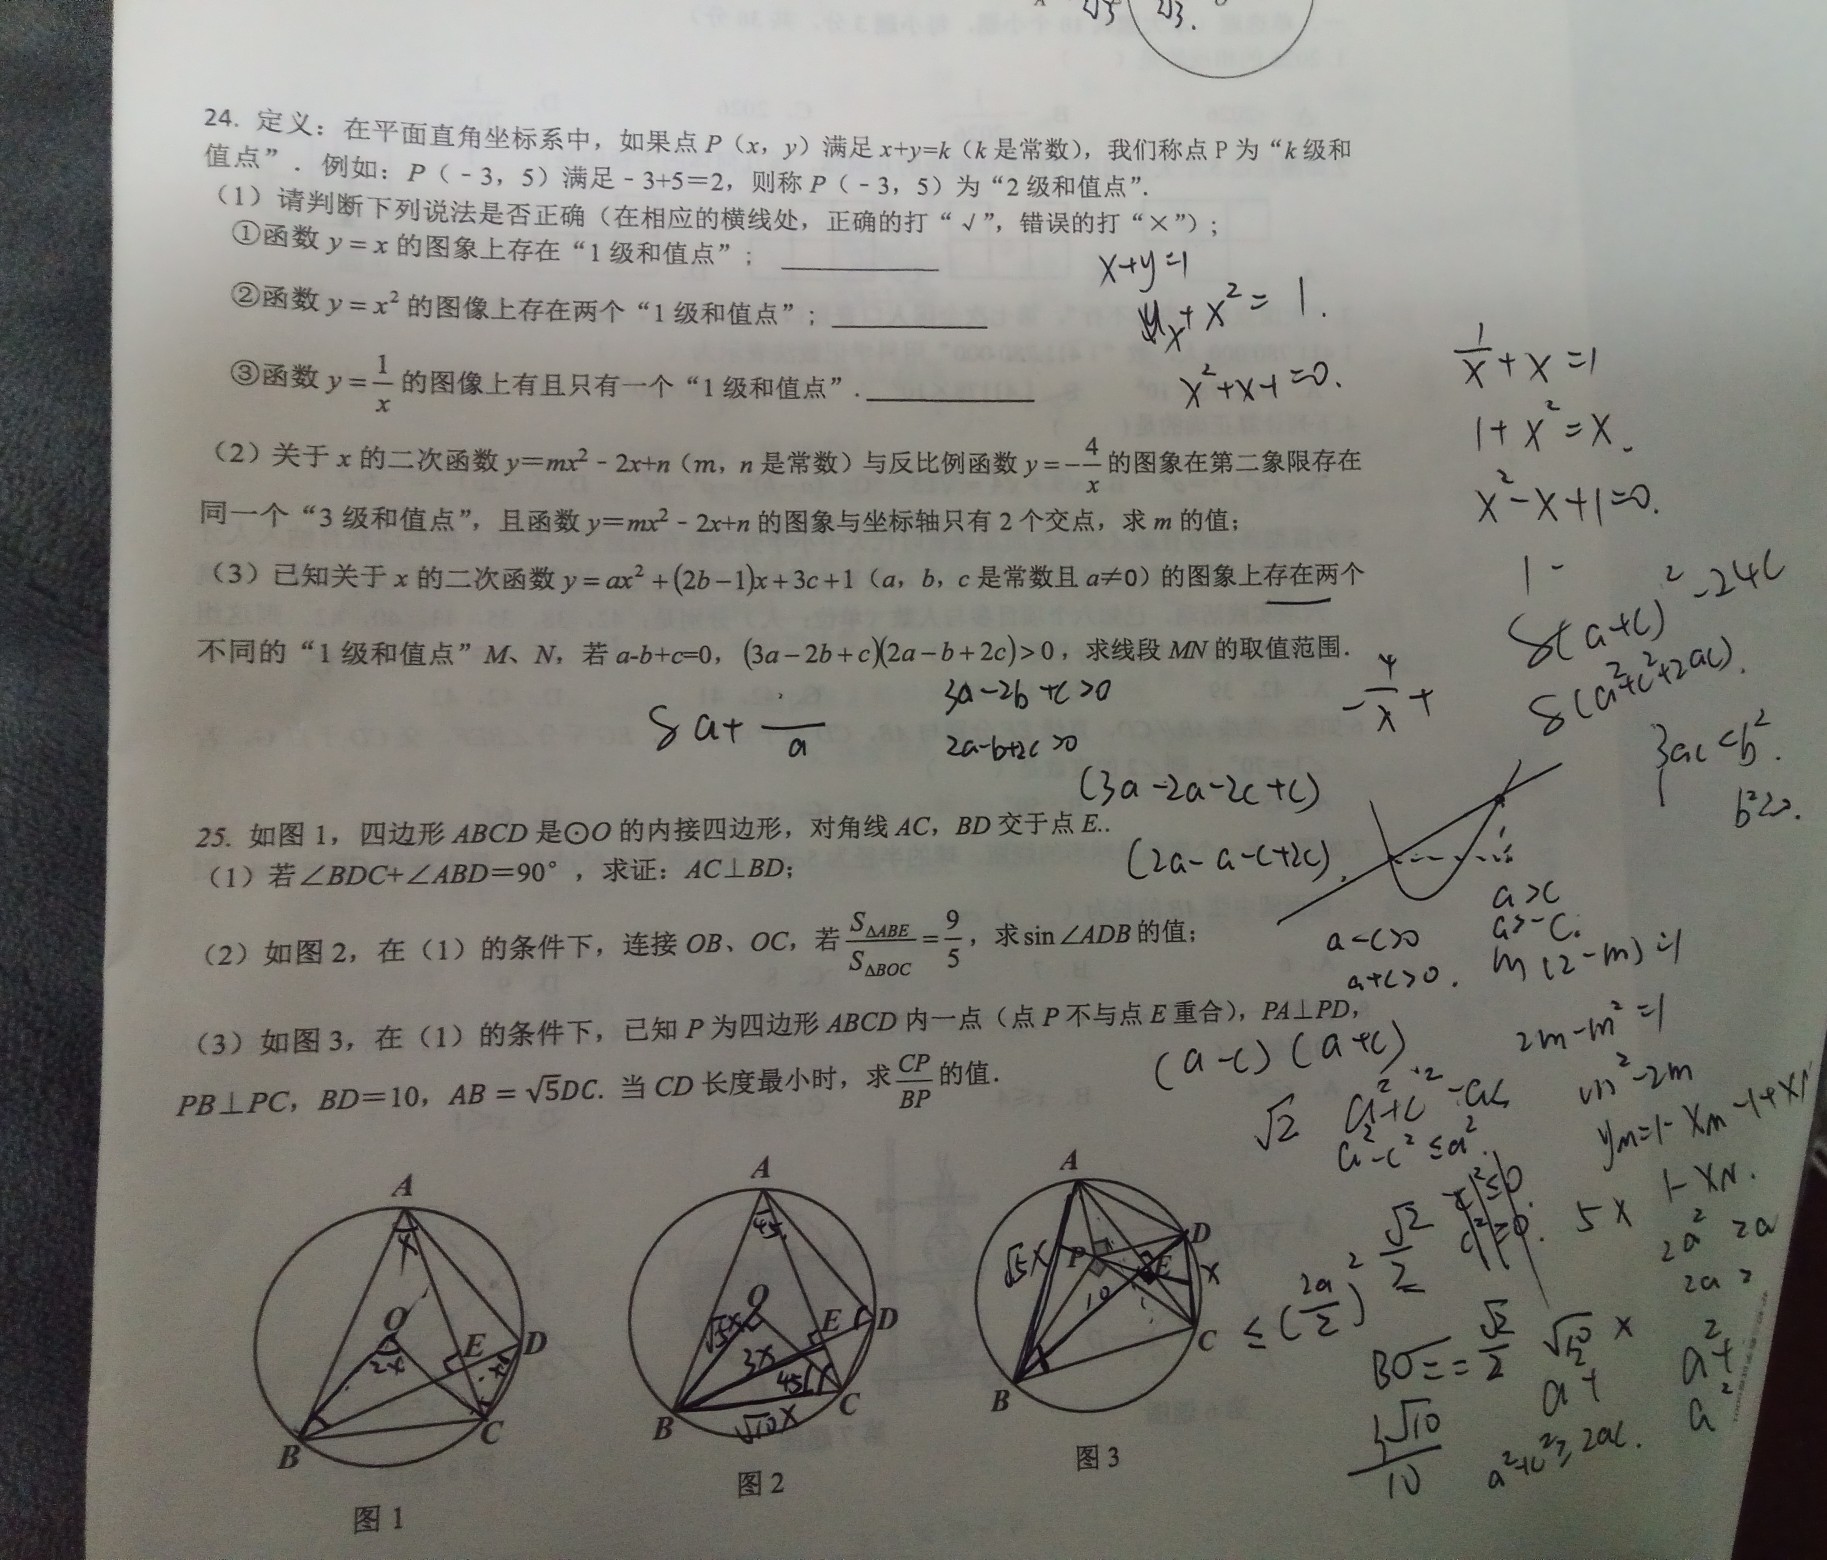 24. 定义：在平面直角坐标系中，如果点 P（x，y）满足 x+y=k（k 是常数），我们称点 P 为“k 级和
值点”．例如：P（﹣3，5）满足﹣3+5＝2，则称 P（﹣3，5）为“2 级和值点”.
（1）请判断下列说法是否正确（在相应的横线处，正确的打“√”，错误的打“×”）；
①函数 y = x 的图象上存在“1 级和值点”；________
x+y=1
②函数 y = x² 的图像上存在两个“1 级和值点”；________
x + x² = 1.
③函数 y = 1/x 的图像上有且只有一个“1 级和值点”.________
x²+x-1=0.
1/x + x = 1
1 + x² = x.
x²-x+1=0.
（2）关于 x 的二次函数 y＝mx²﹣2x+n（m，n 是常数）与反比例函数 y = -4/x 的图象在第二象限存在
同一个“3 级和值点”，且函数 y＝mx²﹣2x+n 的图象与坐标轴只有 2 个交点，求 m 的值；
（3）已知关于 x 的二次函数 y = ax² + (2b-1)x + 3c + 1（a，b，c 是常数且 a≠0）的图象上存在两个
不同的“1 级和值点”M、N，若 a-b+c=0，(3a-2b+c)(2a-b+2c)>0，求线段 MN 的取值范围.
1 -
8(a+c)² - 24c
8(a²+c²+2ac).
3a-2b+c>0
2a-b+2c>0
-4/x +
3ac<b².
(3a-2a-2c+c)
(2a-a-c+2c).
25. 如图 1，四边形 ABCD 是⊙O 的内接四边形，对角线 AC，BD 交于点 E..
（1）若∠BDC+∠ABD＝90°，求证：AC⊥BD；
（2）如图 2，在（1）的条件下，连接 OB、OC，若 S△ABE/S△BOC = 9/5，求 sin∠ADB 的值；
a>c
a>-c.
a-c>0
a+c>0.
m(2-m)=1
（3）如图 3，在（1）的条件下，已知 P 为四边形 ABCD 内一点（点 P 不与点 E 重合），PA⊥PD，
PB⊥PC，BD＝10，AB = √5DC. 当 CD 长度最小时，求 CP/BP 的值.
(a-c)(a+c)
2m-m²=1
m²-2m
√2
a²-c²≤a².
1-xN.
A
O
2x
E
D
B
C
图 1
A
45
O
√5x
E
D
3x
45
B
C
√10x
图 2
A
D
P
E
√5x
x
10
B
C
图 3
≤(2a/2)²
√2/2
5x
2a² 2a
√10/2 x
3√10/10
a²+c²≥2ac.